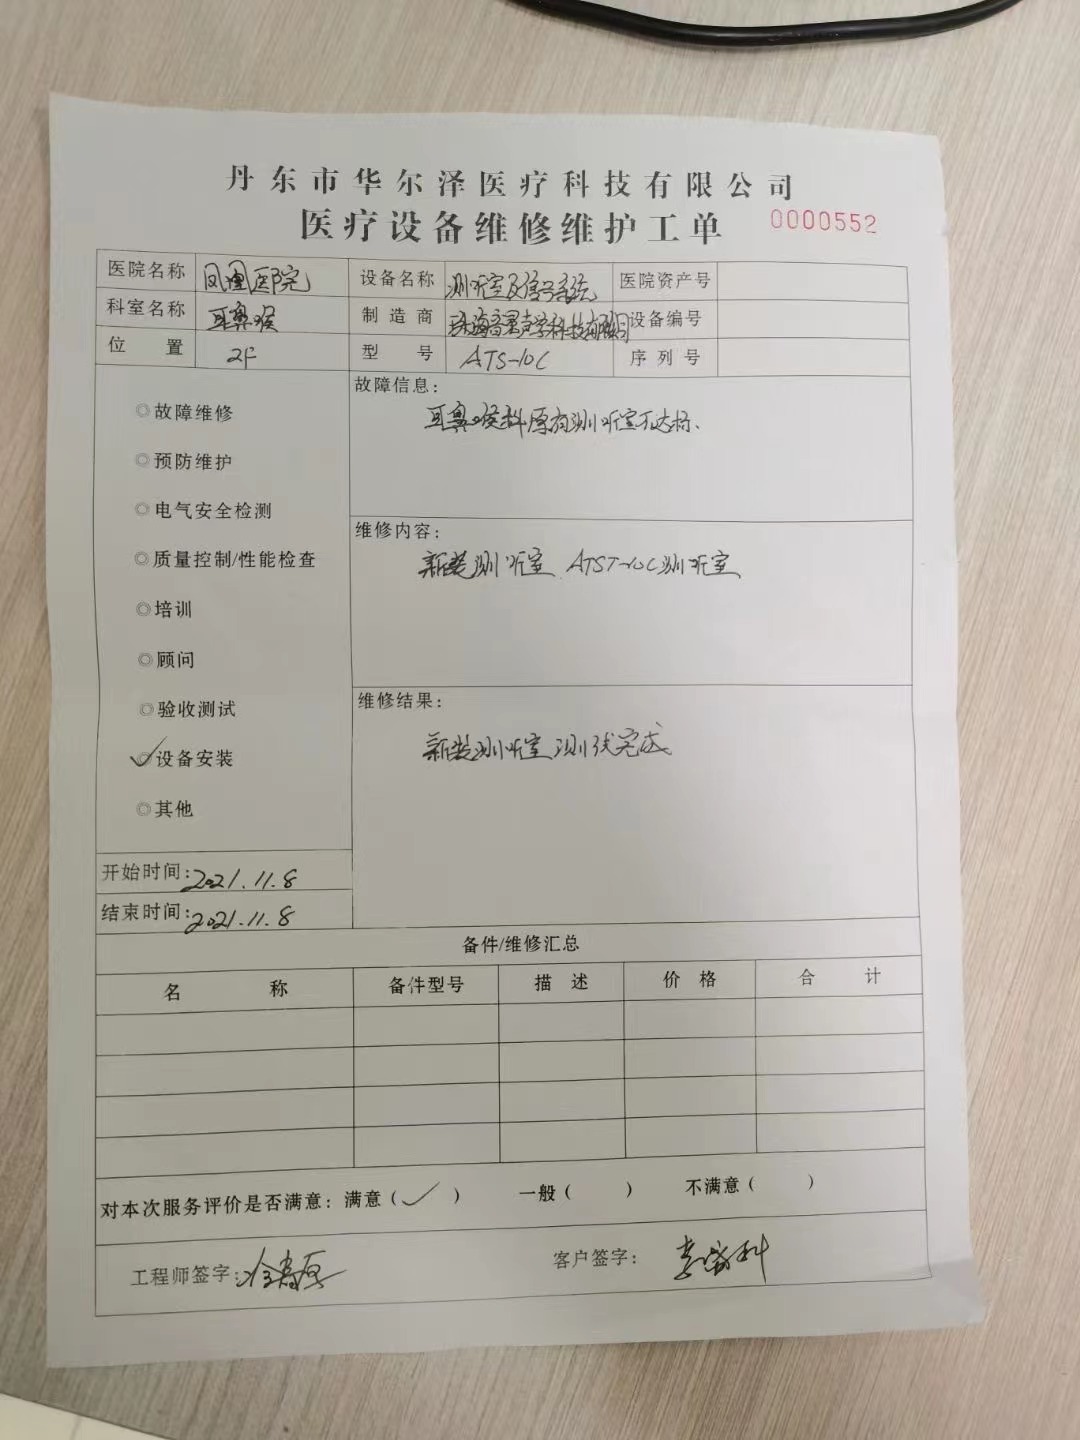 丹东市华尔泽医疗科技有限公司
医疗设备维修维护工单 0000552
医院名称 凤凰医院 设备名称 测听室及信号系统 医院资产号
科室名称 耳鼻喉 制造商 科技有限公司 设备编号
位置 2F 型号 ATS-10C 序列号
故障信息:
耳鼻喉科原有测听室不达标、
◎故障维修
◎预防维护
◎电气安全检测
◎质量控制/性能检查
◎培训
◎顾问
◎验收测试
✓◎设备安装
◎其他
维修内容:
新装测听室 ATST-10C测听室
维修结果:
新装测听室测试完成
开始时间:2021.11.8
结束时间:2021.11.8
备件/维修汇总
名称 备件型号 描述 价格 合计
对本次服务评价是否满意: 满意(✓) 一般( ) 不满意( )
工程师签字: 客户签字: